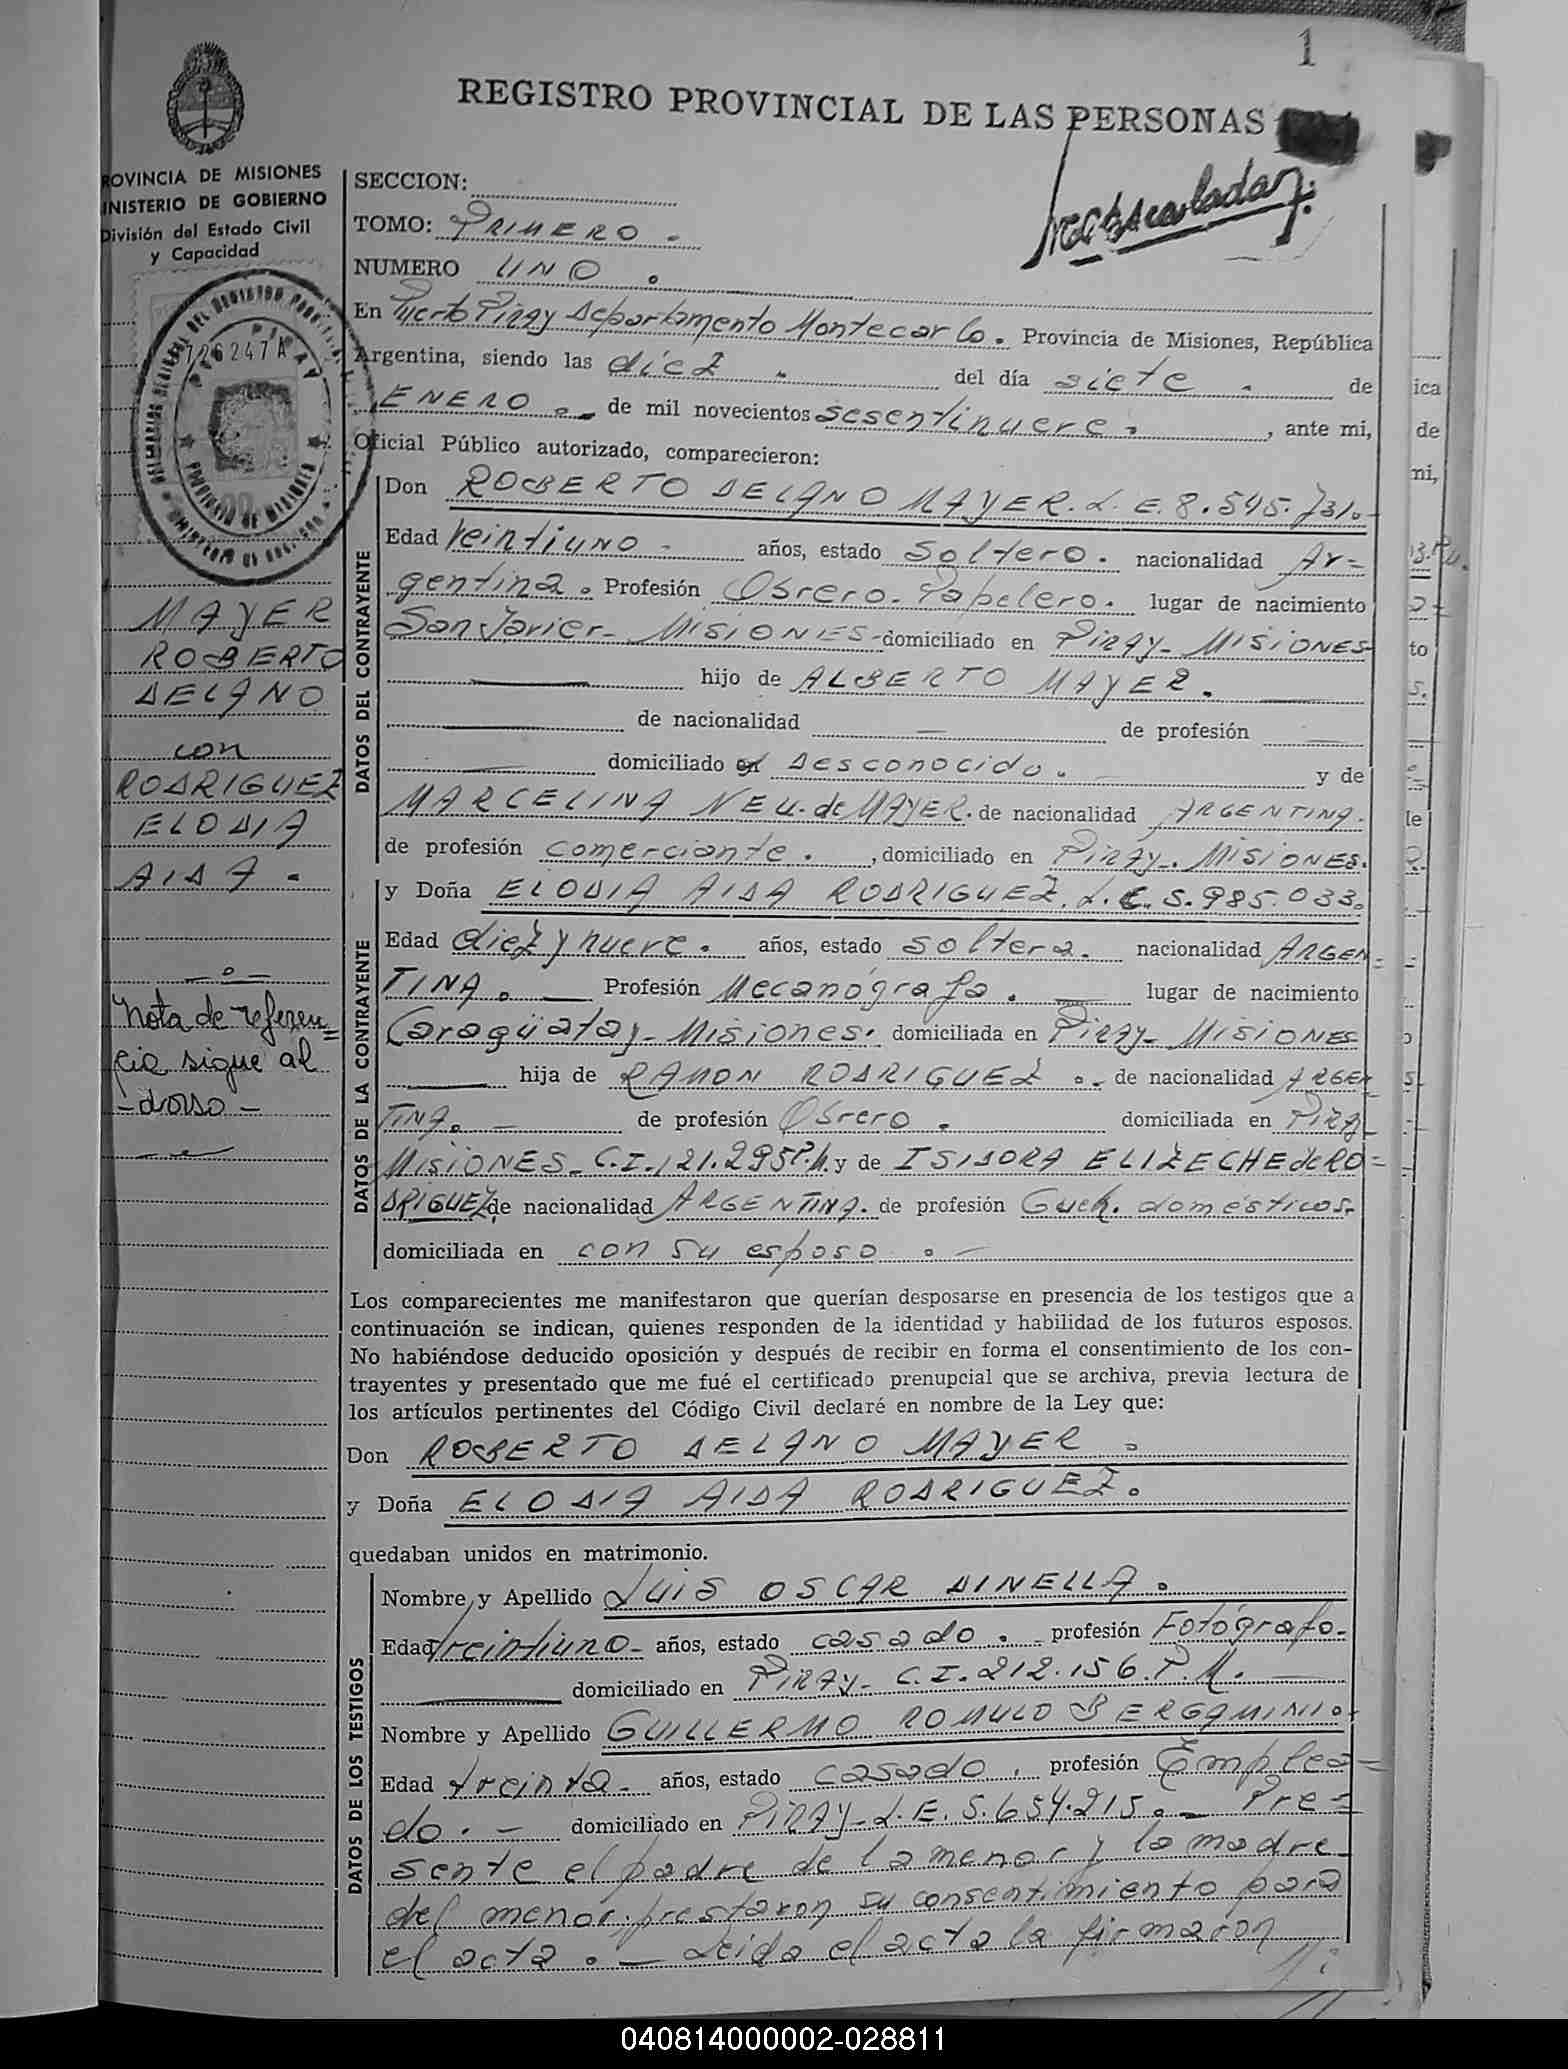 1
REGISTRO PROVINCIAL DE LAS PERSONAS
PROVINCIA DE MISIONES
MINISTERIO DE GOBIERNO
División del Estado Civil
y Capacidad
726247 A
PIRAY
PROVINCIA DE MISIONES
MAYER
ROBERTO
DELANO
con
RODRIGUEZ
ELODIA
AIDA.
Nota de referen=
cia sigue al
-dorso-
SECCION:
TOMO: PRIMERO.
NUMERO UNO.
En Puerto Piray Departamento Montecarlo. Provincia de Misiones, República
Argentina, siendo las diez. del día siete. de
ENERO.- de mil novecientos sesentinueve. , ante mi,
Oficial Público autorizado, comparecieron:
DATOS DEL CONTRAYENTE
Don ROBERTO DELANO MAYER. L.E. 8.545.731.-
Edad Veintiuno.- años, estado Soltero. nacionalidad Ar=
gentina. Profesión Obrero-Papelero. lugar de nacimiento
San Javier- MISIONES- domiciliado en PIRAY- MISIONES
hijo de ALBERTO MAYER.
de nacionalidad — de profesión —
domiciliado en desconocido. y de
MARCELINA NEU. de MAYER. de nacionalidad ARGENTINA.
de profesión comerciante. , domiciliado en PIRAY-. MISIONES.
DATOS DE LA CONTRAYENTE
y Doña ELODIA AIDA RODRIGUEZ. L.C. 5.985.033.
Edad diez y nueve. años, estado soltera. nacionalidad ARGEN=
TINA. — Profesión Mecanógrafa. — lugar de nacimiento
Caragüatay- Misiones. domiciliada en PIRAY- MISIONES
hija de RAMON RODRIGUEZ.- de nacionalidad ARGEN=
TINA.- de profesión Obrero. domiciliada en PIRAY-
MISIONES- C.I. 121.295 P.M. y de ISIDORA ELIZECHE de RO=
DRIGUEZ de nacionalidad ARGENTINA. de profesión Queh. domésticos.
domiciliada en con su esposo.-
Los comparecientes me manifestaron que querían desposarse en presencia de los testigos que a
continuación se indican, quienes responden de la identidad y habilidad de los futuros esposos.
No habiéndose deducido oposición y después de recibir en forma el consentimiento de los con-
trayentes y presentado que me fué el certificado prenupcial que se archiva, previa lectura de
los artículos pertinentes del Código Civil declaré en nombre de la Ley que:
Don ROBERTO DELANO MAYER.
y Doña ELODIA AIDA RODRIGUEZ.
quedaban unidos en matrimonio.
DATOS DE LOS TESTIGOS
Nombre y Apellido LUIS OSCAR DINELLA.
Edad treintiuno- años, estado casado.- profesión Fotógrafo.-
domiciliado en PIRAY- C.I. 212.156. P.M.
Nombre y Apellido GUILLERMO ROMULO BERGAMINI.
Edad treinta- años, estado casado. profesión Emplea=
do.- domiciliado en PIRAY- L.E. 5.654.215.- Pre=
sente el padre de la menor y la madre
del menor, prestaron su consentimiento para
el acta.- Leida el acta la firmaron
040814000002-028811